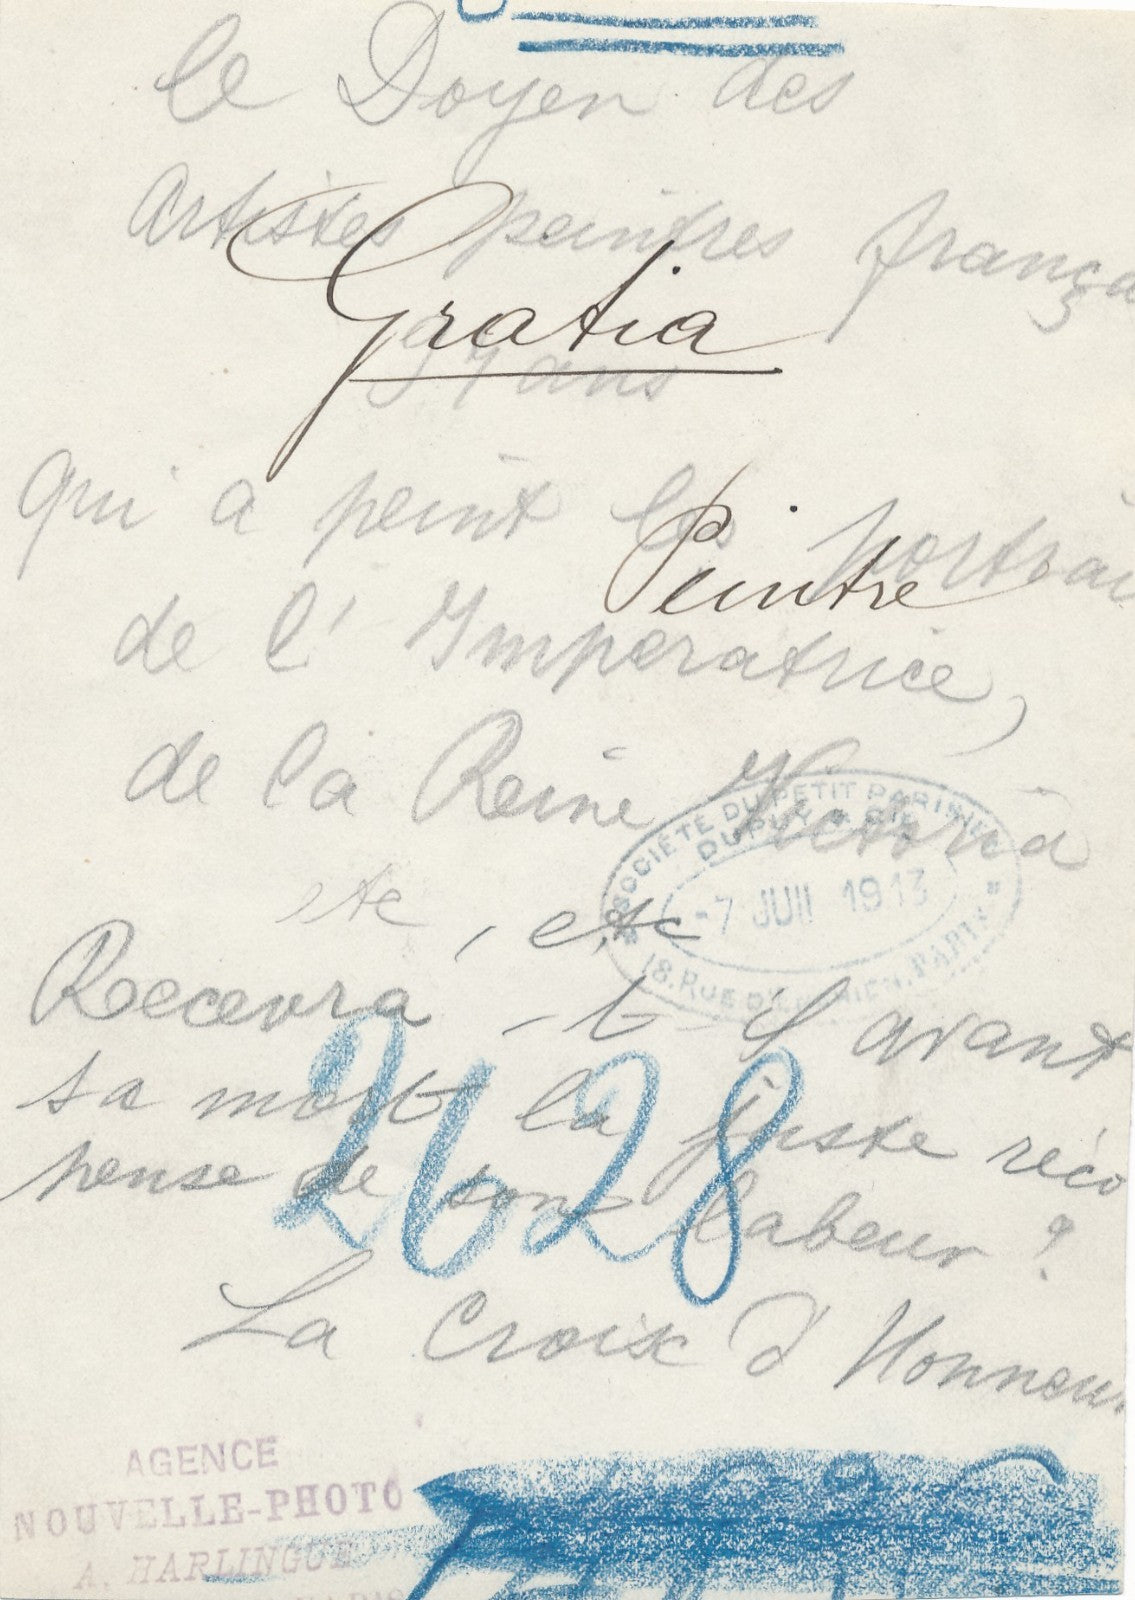 le Doyen des
artistes peintres frança
Gratia
97 ans
qui a peint les portrai
Peintre
de l'Imperatrice,
de la Reine Victoria
etc, etc
SOCIÉTÉ DU PETIT PARISIEN
DUPUY & CIE
-7 JUIL 1913
18, RUE D'ENGHIEN, PARIS
Recevra-t-il avant
sa mort la juste réco
pense de son labeur ?
2628
La Croix d'Honneur
AGENCE
NOUVELLE-PHOTO
A. HARLINGUE
PARIS